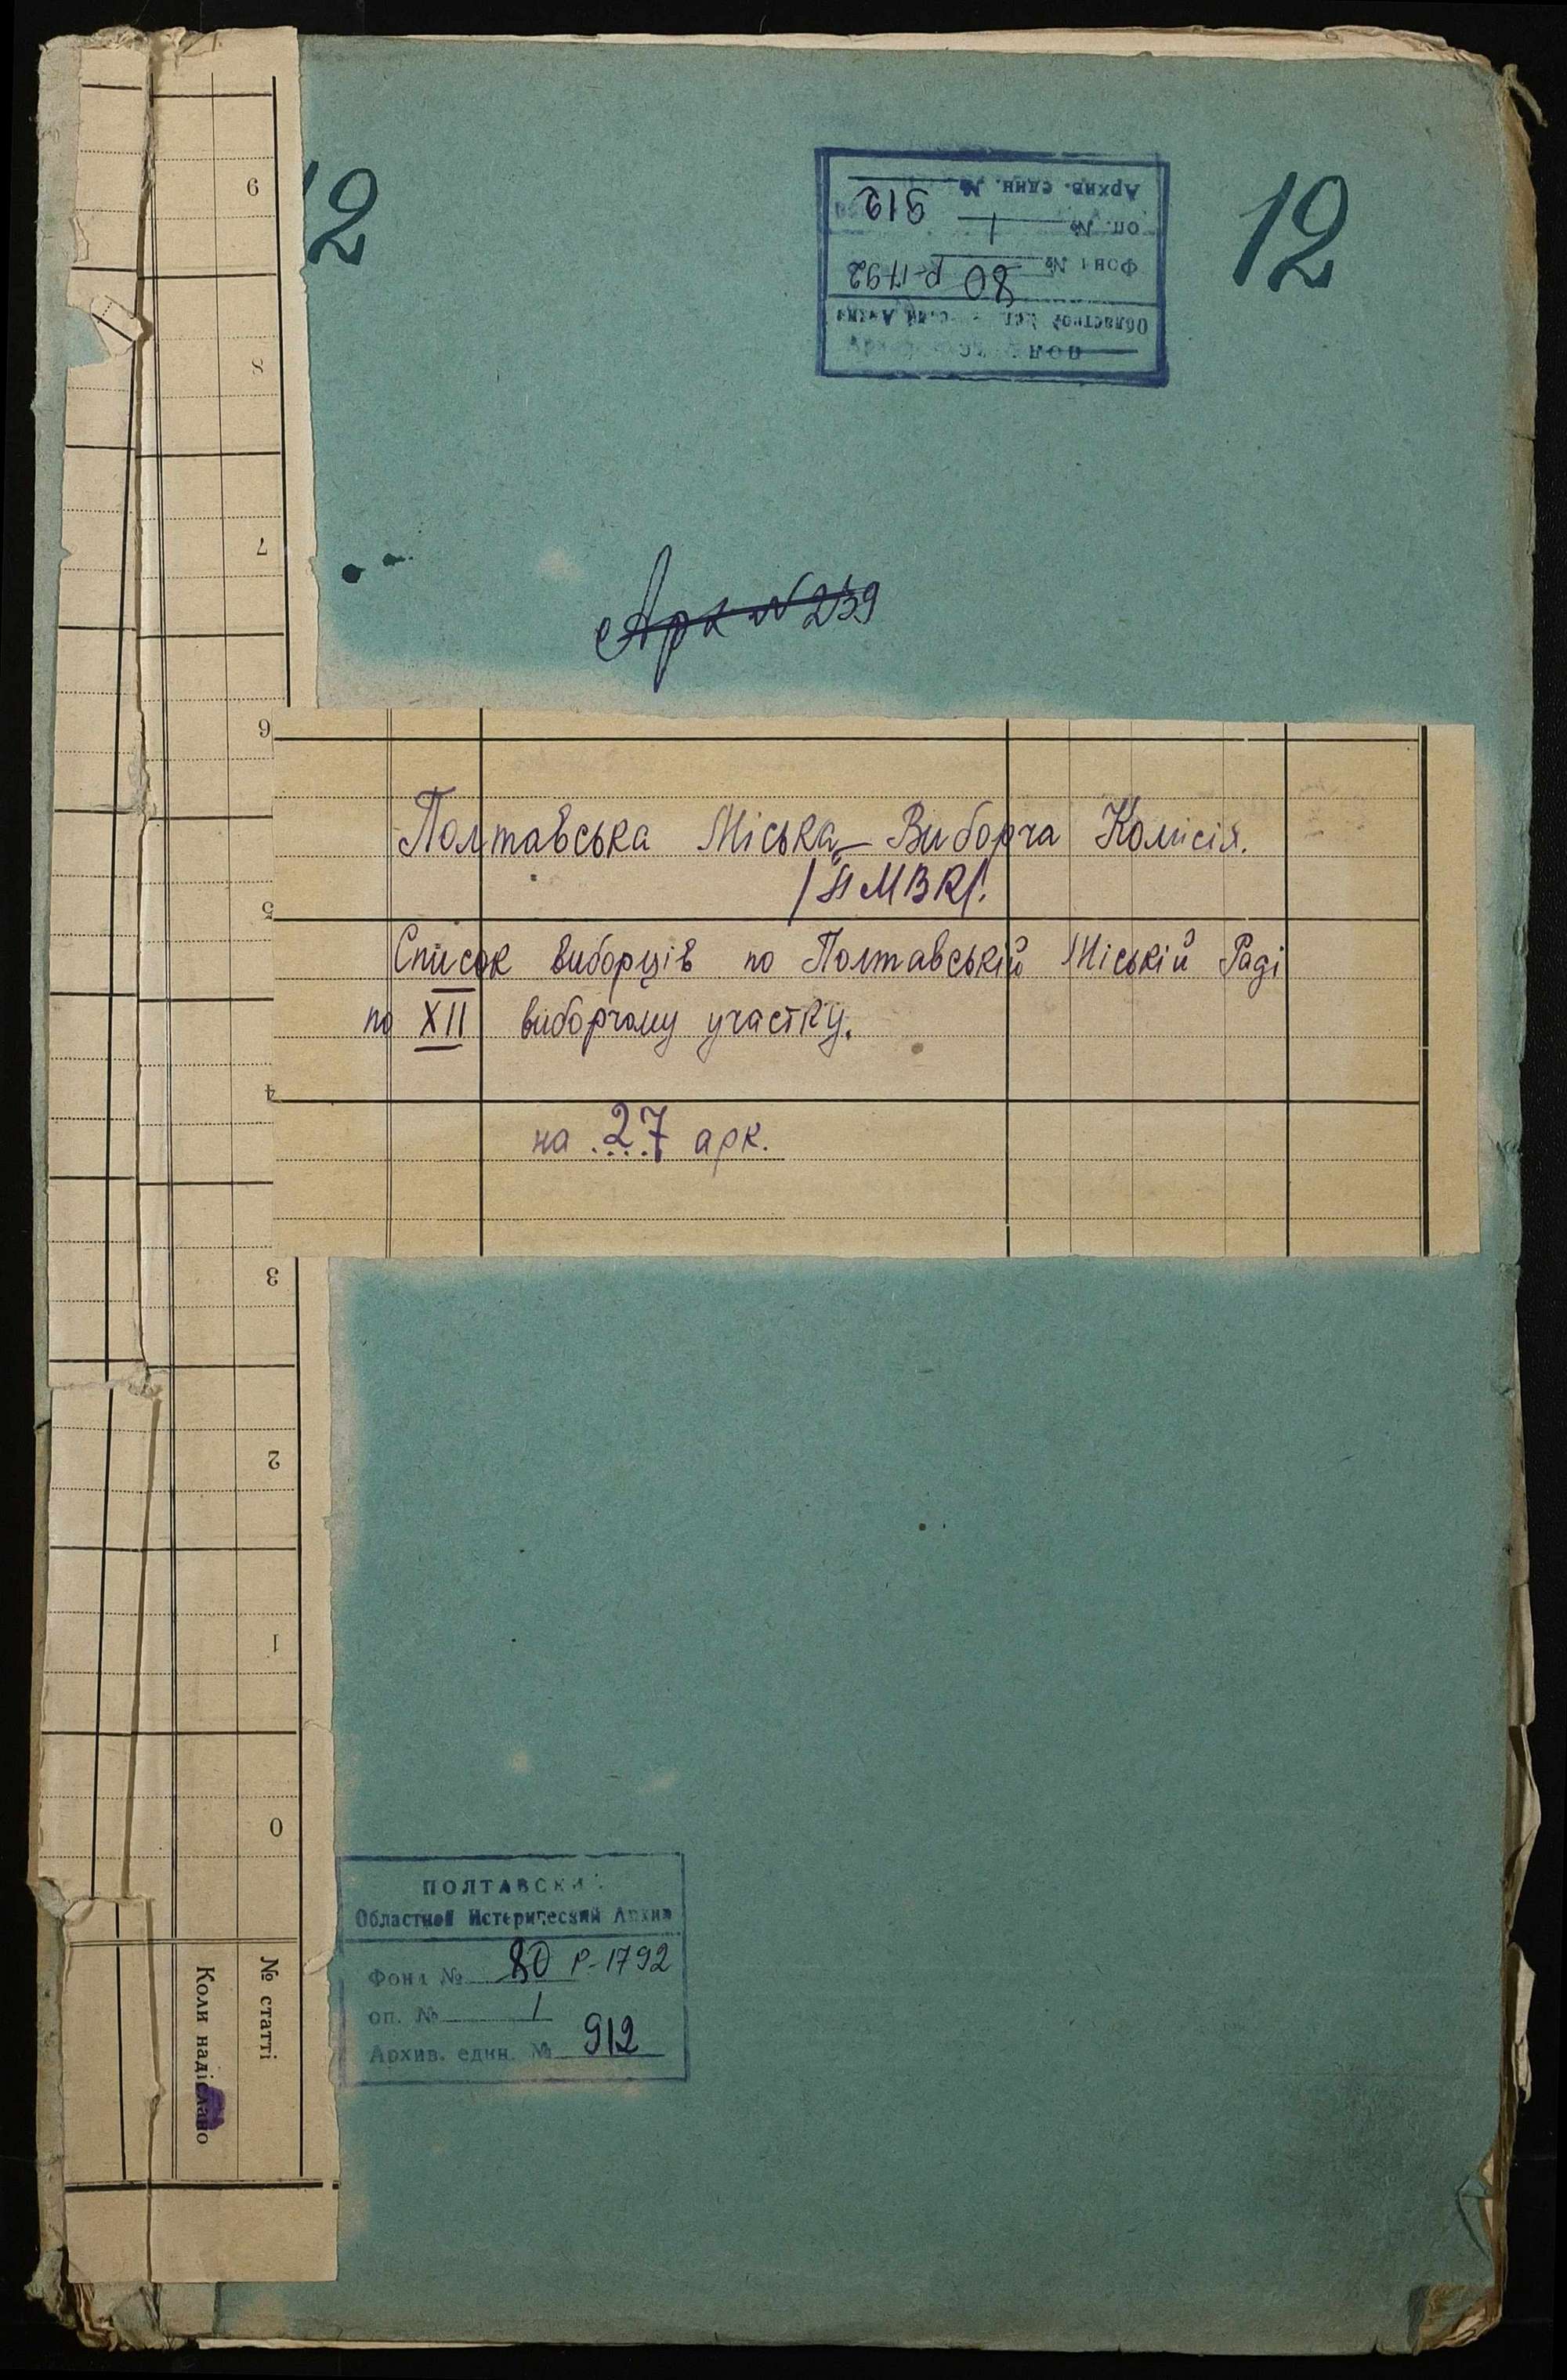 12
12
Архив. един. № 912
оп. № 1
Фонд № 80 р-1792
Арк N 239
Полтавська Міська Виборча Комісія.
/ПМВК/.
Список виборців по Полтавській Міській Раді
по XII виборчому участку.
на 27 арк.
9
8
7
6
5
4
3
2
1
0
№ статті
Коли надіслано
ПОЛТАВСКИЙ
Областной Исторический Архив
Фонд № 80 Р-1792
оп. № 1
Архив. един. № 912